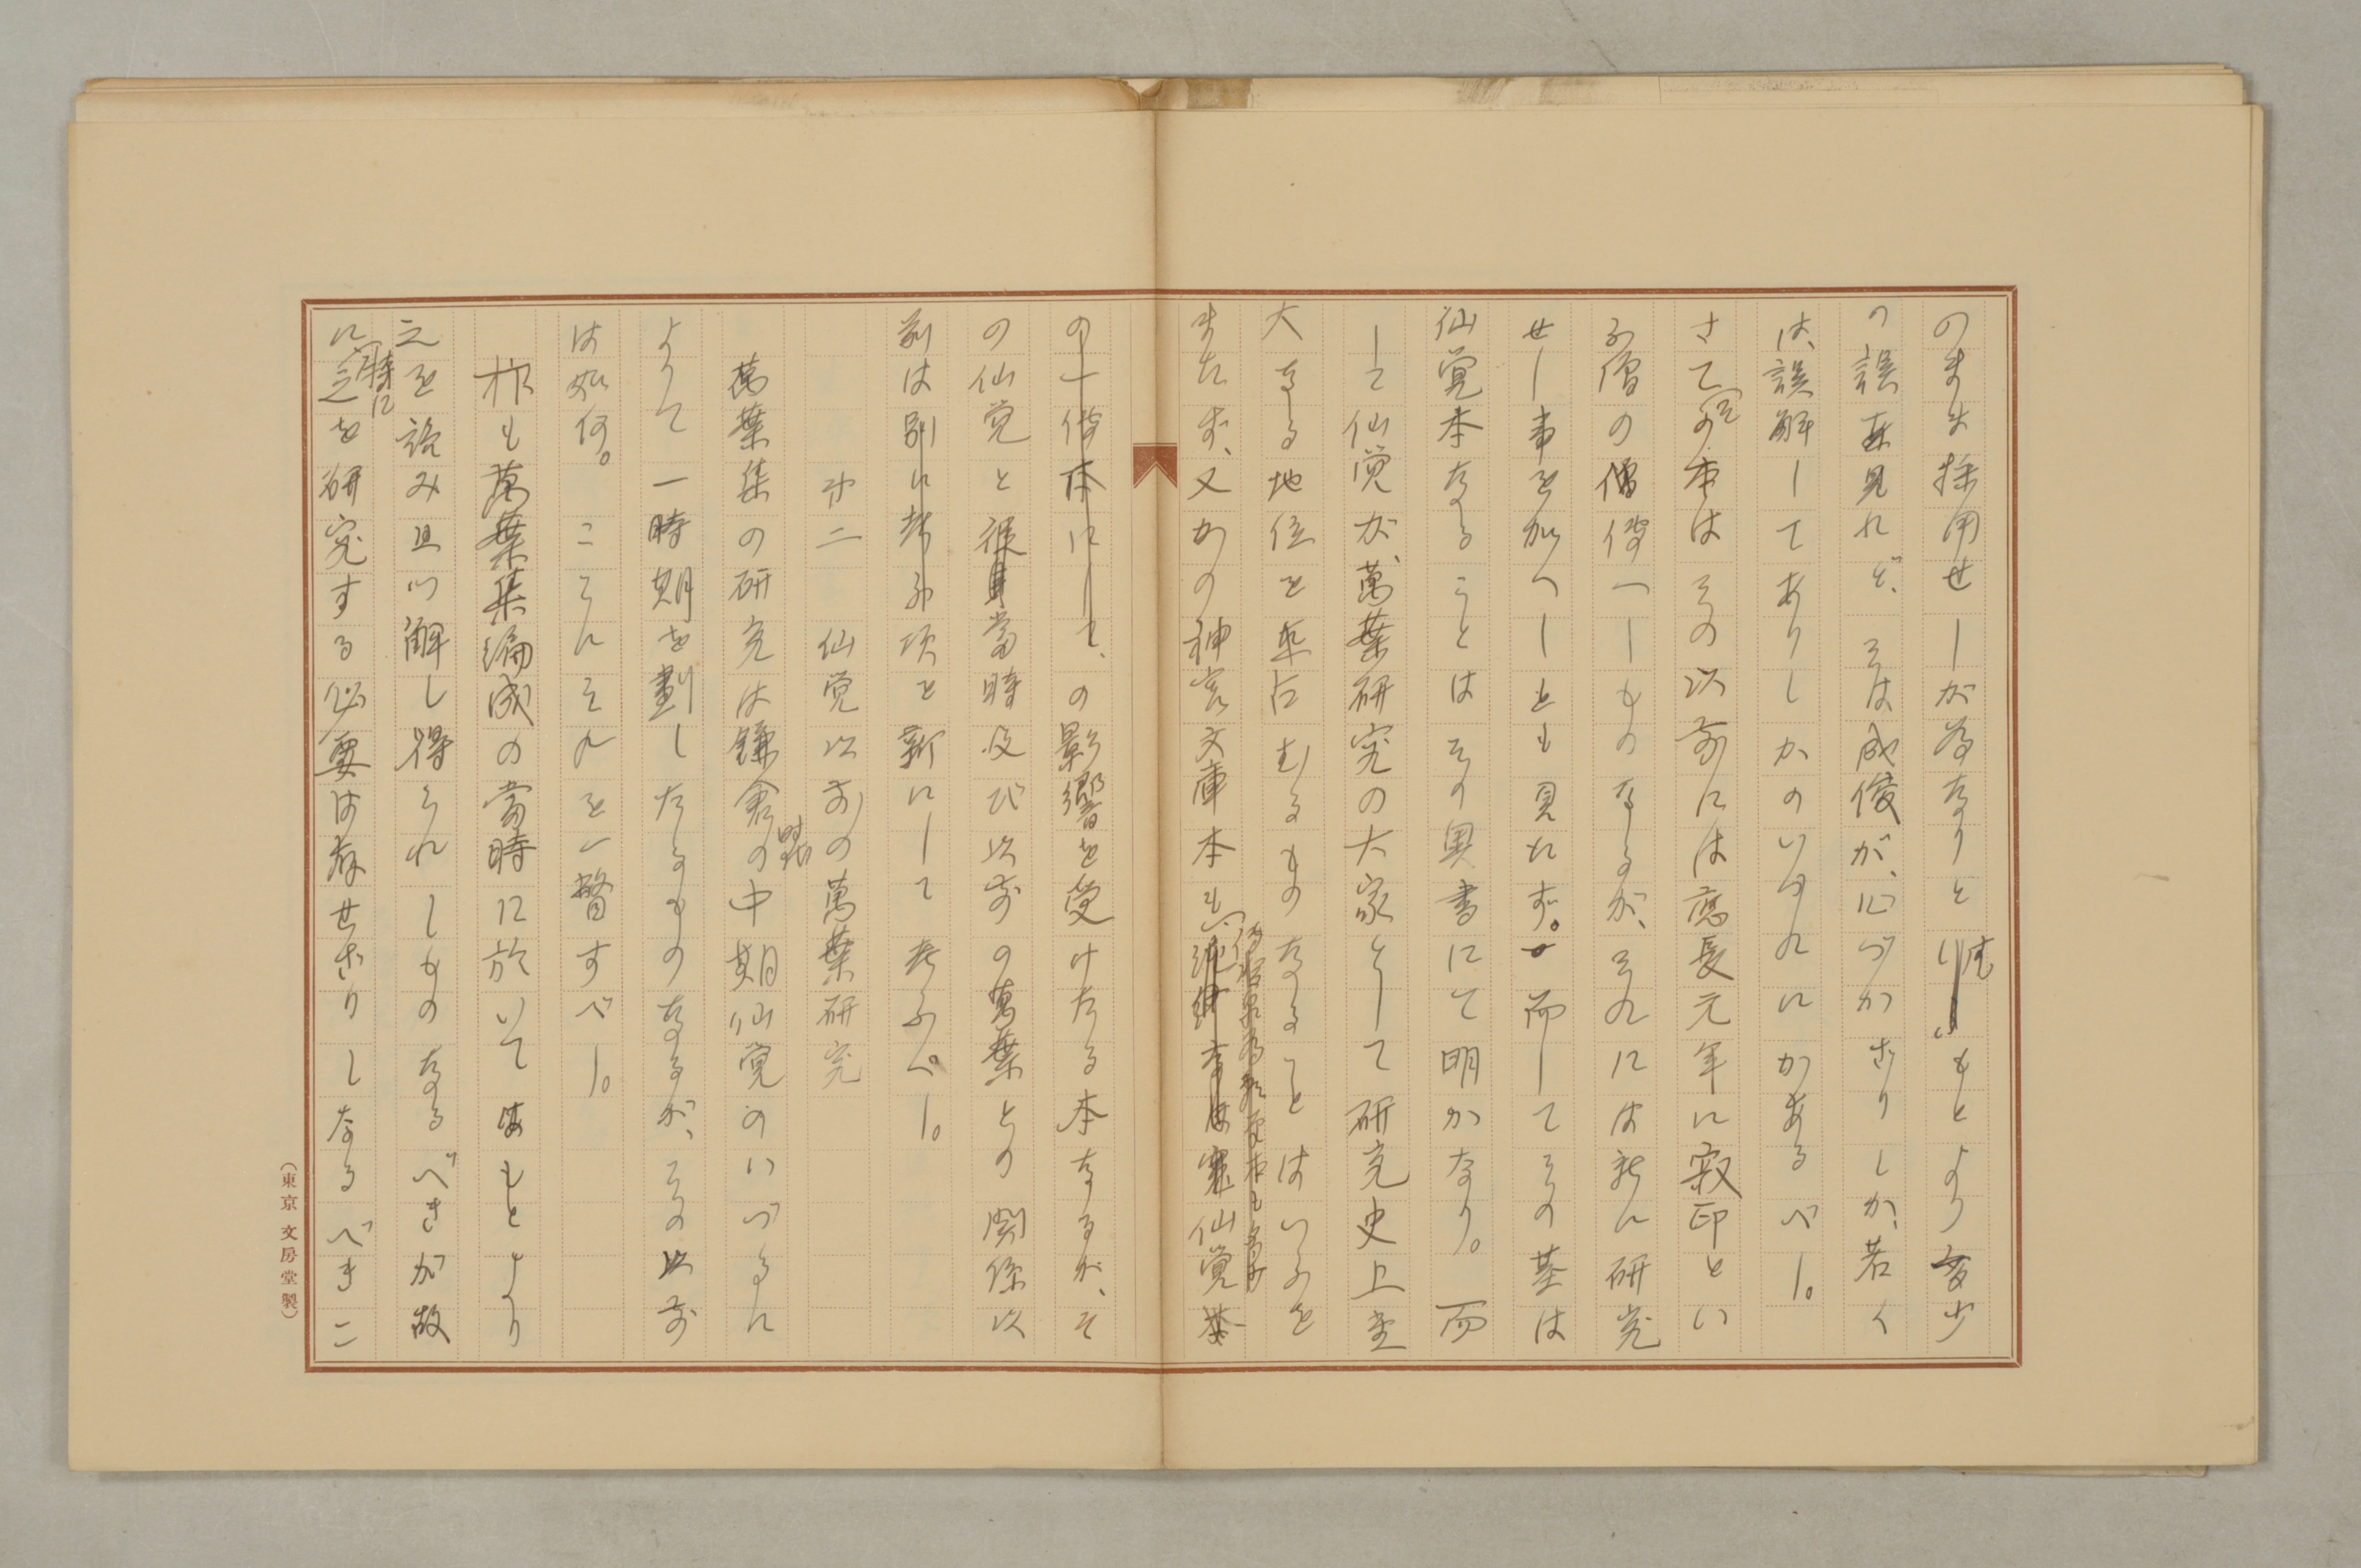 のまま採用せしが為なりと もとより多少
の誤謬見れど、そは成俊が、心づかざりしか、若く
は、誤解してありしかのいづれにかあるべし。
さてこの本はその以前には應長元年に寂印とい
ふ僧の傳へしものなるが、それには新に研究
せし事を加へしとも見れず。而してその基は
仙覚本なることはその奥書にて明かなり。而
して仙覚が、萬葉研究の大家として研究史上至
大なる地位を占むるものなることはいふを
またず、又かの神宮文庫本も 仙覚
の影響を受けたる本なるが、そ
の仙覚と當時及び以前の萬葉との関係以
項を新にして考ふべし。
第二 仙覚以前の萬葉研究
萬葉集の研究は鎌倉時代の中期仙覚のいづるに
よりて一時期を劃したるものなるが、その以前
は如何。ここにそれを一瞥すべし。
抑も萬葉集編成の當時に於いてはもとより
之を読み且つ解し得られしものなるべきが故
に、特に之を研究する必要は存せざりしなるべきこ
(東京 文房堂製)